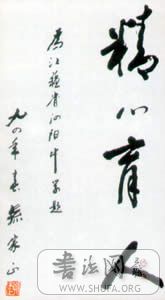 精心育人
为江苏省沭阳中学题
九四年春 孙家正
書法网
WWW.SHUFA.ORG